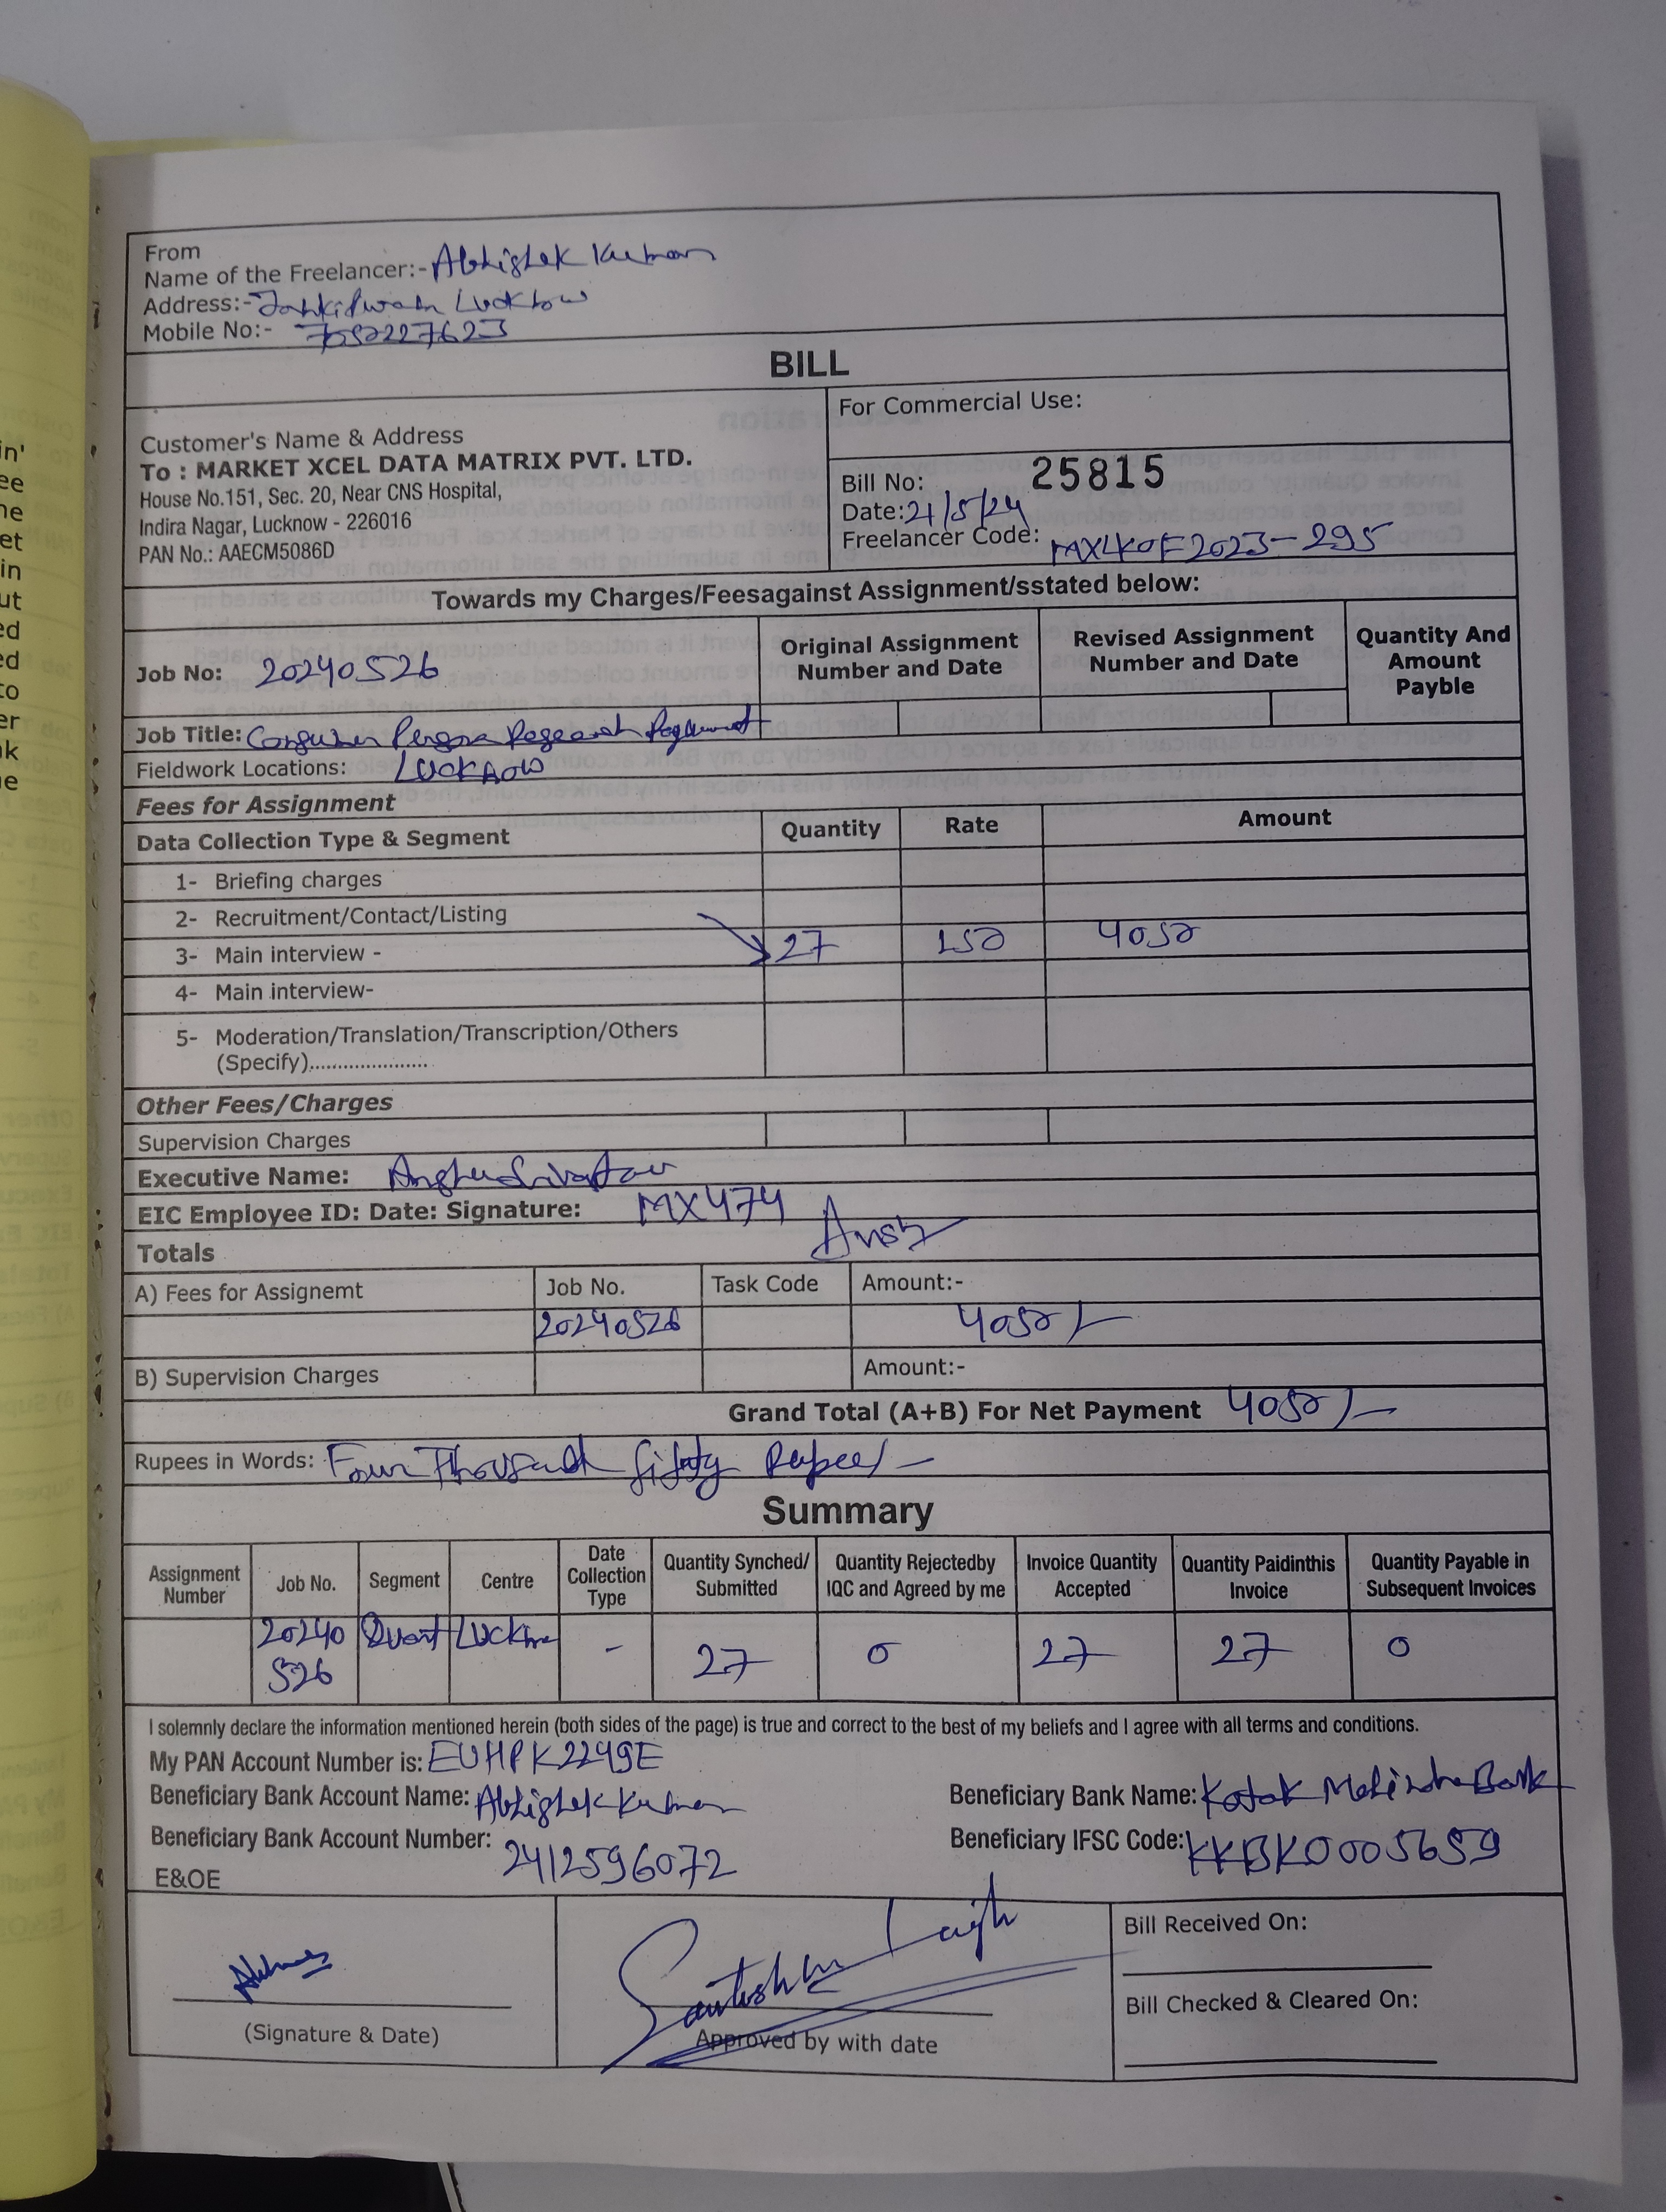 From
Name of the Freelancer:- Abhishek Kumar
Address:- Lucknow
Mobile No:-
BILL
Customer's Name & Address
To : MARKET XCEL DATA MATRIX PVT. LTD.
House No.151, Sec. 20, Near CNS Hospital,
Indira Nagar, Lucknow - 226016
PAN No.: AAECM5086D
For Commercial Use:
Bill No: 25815
Date: 21/5/24
Freelancer Code: MXLKOF2023-295
Towards my Charges/Feesagainst Assignment/sstated below:
Job No: 20240526
Original Assignment Number and Date
Revised Assignment Number and Date
Quantity And Amount Payble
Job Title: Consumer Persona Research Payment
Fieldwork Locations: Lucknow
Fees for Assignment
Data Collection Type & Segment Quantity Rate Amount
1- Briefing charges
2- Recruitment/Contact/Listing
3- Main interview - 27 150 4050
4- Main interview-
5- Moderation/Translation/Transcription/Others
(Specify).....................
Other Fees/Charges
Supervision Charges
Executive Name:
EIC Employee ID: Date: Signature: MX474
Totals
A) Fees for Assignemt Job No. Task Code Amount:-
20240526 4050/-
B) Supervision Charges Amount:-
Grand Total (A+B) For Net Payment 4050/-
Rupees in Words: Four Thousand fifty Rupees/-
Summary
Assignment Number Job No. Segment Centre Date Collection Type Quantity Synched/ Submitted Quantity Rejectedby IQC and Agreed by me Invoice Quantity Accepted Quantity Paidinthis Invoice Quantity Payable in Subsequent Invoices
20240 526 Quant Lucknow - 27 0 27 27 0
I solemnly declare the information mentioned herein (both sides of the page) is true and correct to the best of my beliefs and I agree with all terms and conditions.
My PAN Account Number is: EUHPK2249E
Beneficiary Bank Account Name: Abhishek Kumar
Beneficiary Bank Name: Kotak Mahindra Bank
Beneficiary Bank Account Number: 2412596072
Beneficiary IFSC Code: KKBK0005659
E&OE
(Signature & Date)
Santosh
Approved by with date
Bill Received On:
Bill Checked & Cleared On: